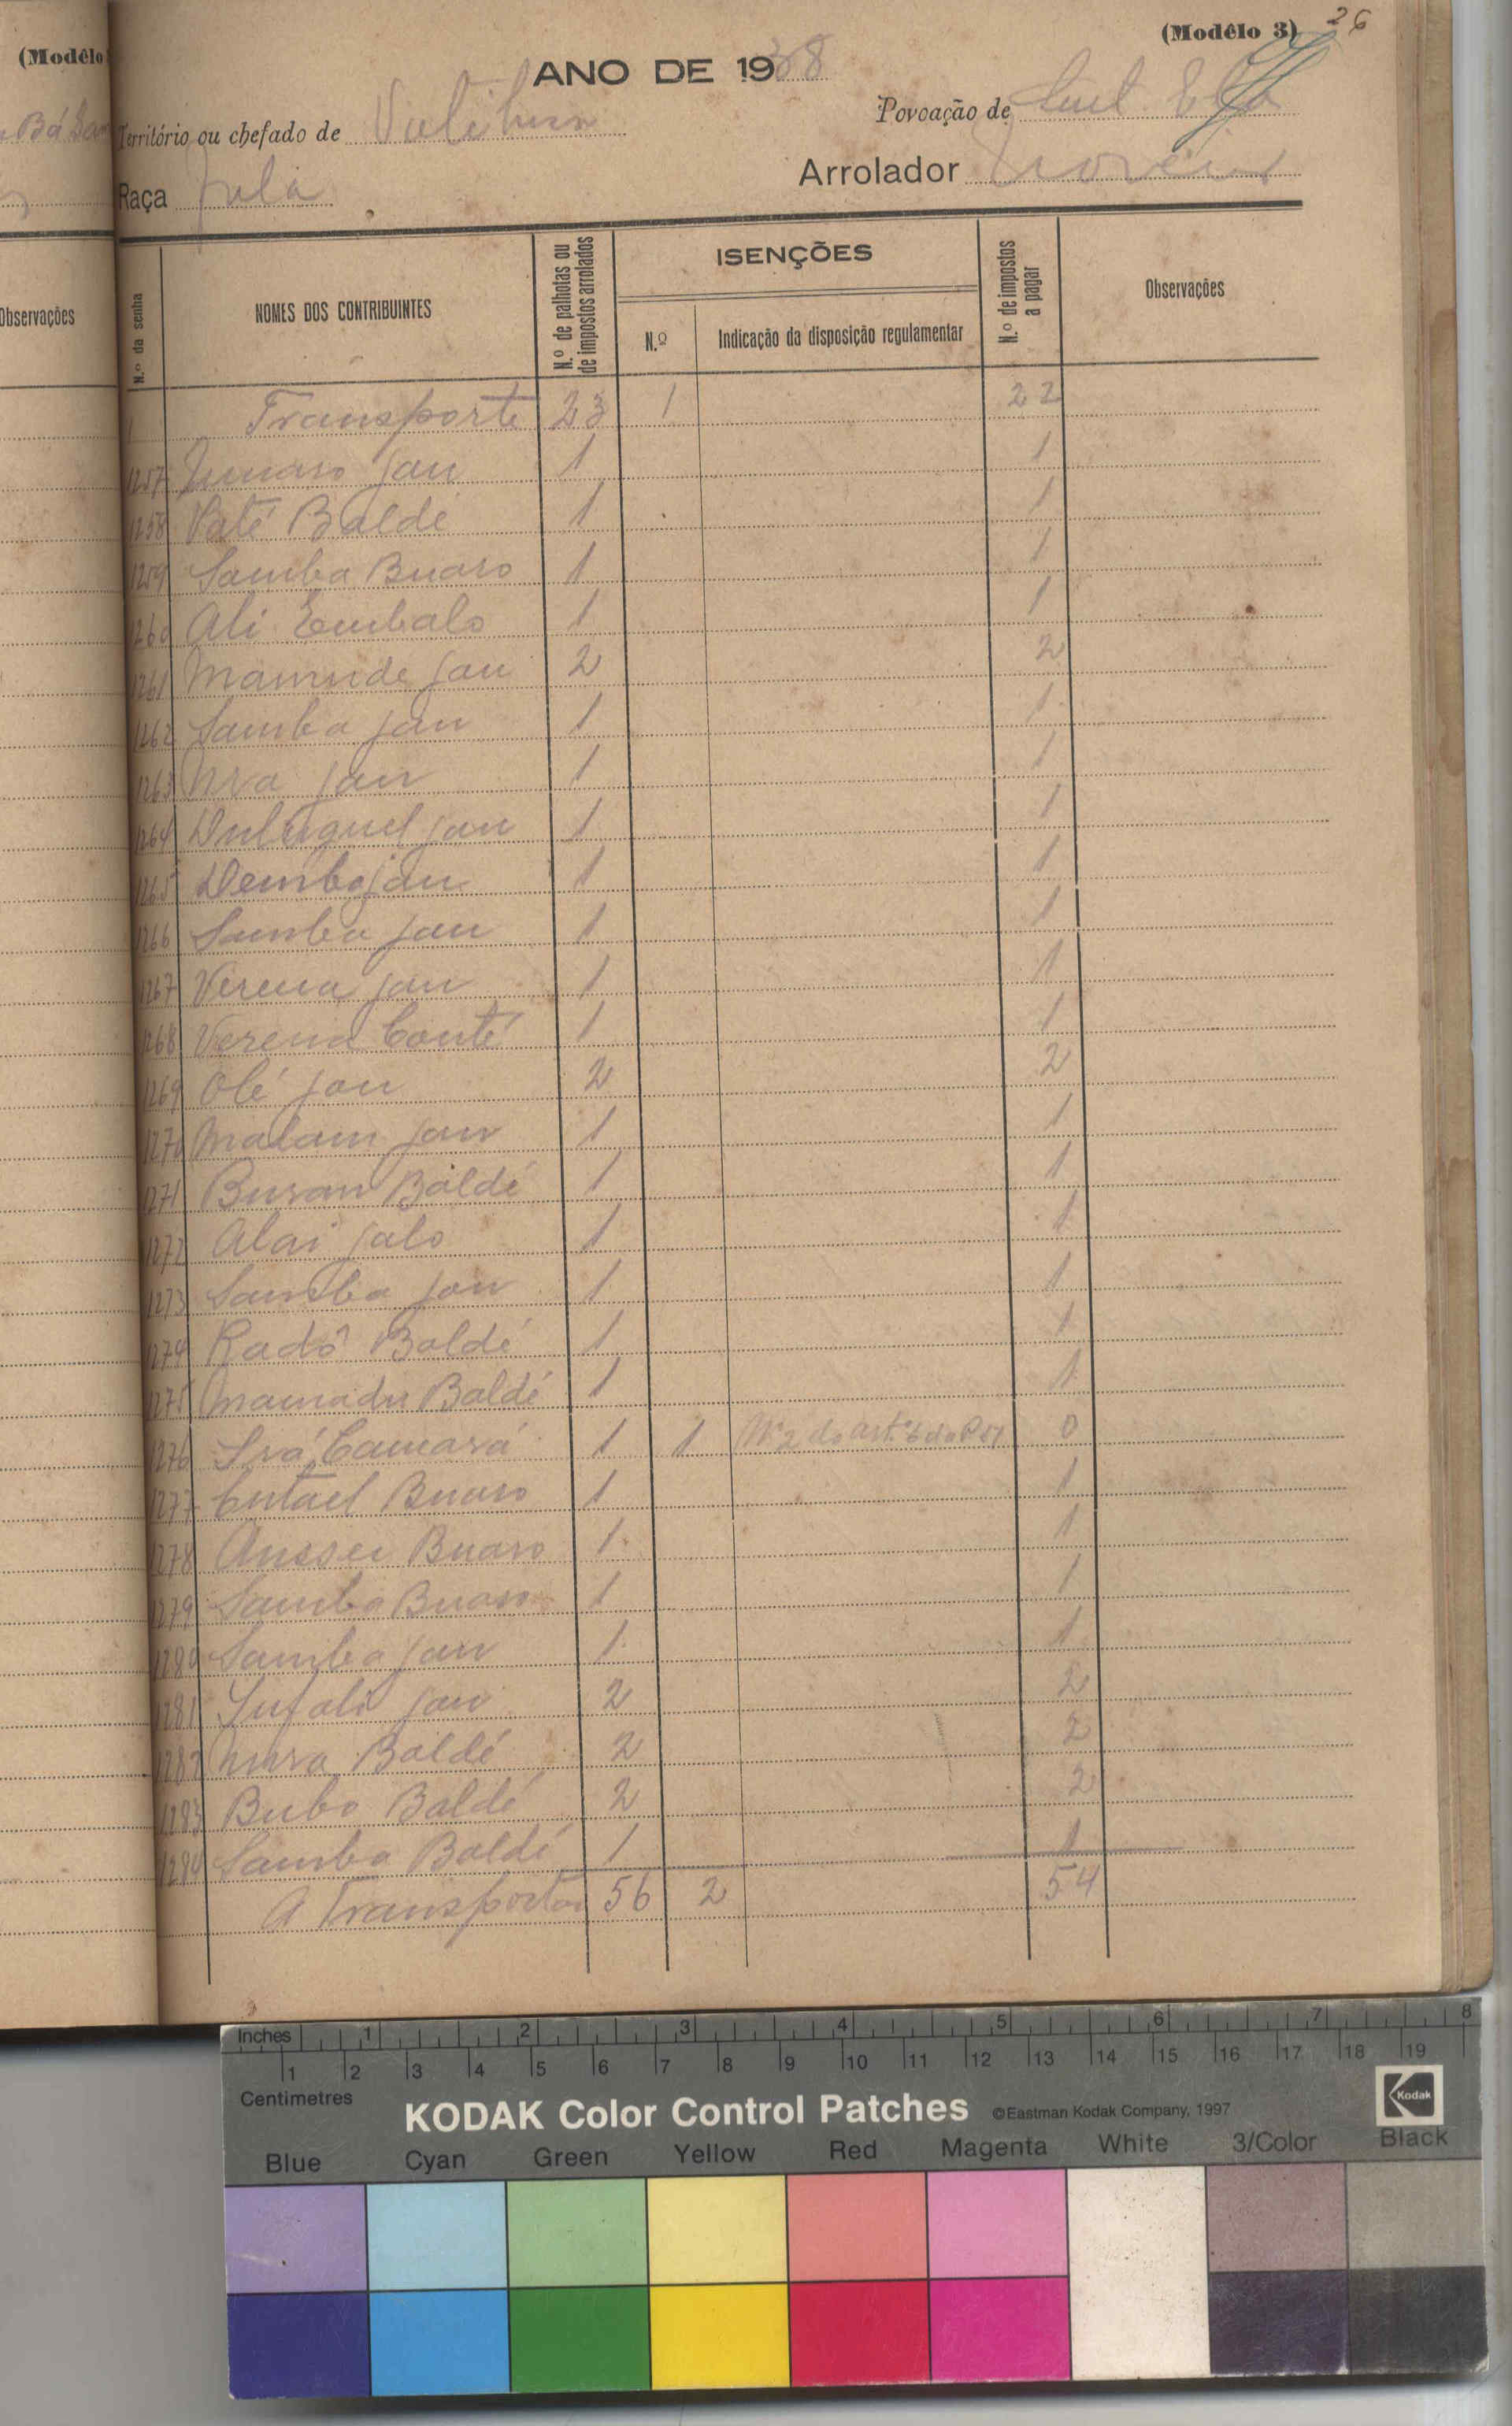 (Modêlo
Observações
(Modêlo 3) 26
ANO DE 1938
Território ou chefado de
Povoação de
Raça Fula
Arrolador
N.º da senha
NOMES DOS CONTRIBUINTES
N.º de palhotas ou de impostos arrolados
ISENÇÕES
N.º
Indicação da disposição regulamentar
N.º de impostos a pagar
Observações
Transporte 23 1 22
1257 Jau 1 1
1258 Baldé 1 1
1259 Samba Buaro 1 1
1260 Ali Embalo 1 1
1261 Mamude Jau 2 2
1262 Samba Jau 1 1
1263 Jau 1 1
1264 Jau 1 1
1265 Demba Jau 1 1
1266 Samba Jau 1 1
1267 Verena Jau 1 1
1268 Verena Conté 1 1
1269 Olé Jau 2 2
1270 Malam Jau 1 1
1271 Baldé 1 1
1272 Alai Jalo 1 1
1273 Samba Jau 1 1
1274 Radô Baldé 1 1
1275 Mamadu Baldé 1 1
1276 Camará 1 1 Nº 2 do artº 6 do 0
1277 Buaro 1 1
1278 Buaro 1 1
1279 Samba Buaro 1 1
1280 Samba Jau 1 1
1281 Jau 2 2
1282 Baldé 2 2
1283 Bubo Baldé 2 2
1284 Samba Baldé 1 1
A Transportar 56 2 54
Inches 1 2 3 4 5 6 7 8
1 2 3 4 5 6 7 8 9 10 11 12 13 14 15 16 17 18 19
Centimetres
KODAK Color Control Patches ©Eastman Kodak Company, 1997 Kodak
Blue Cyan Green Yellow Red Magenta White 3/Color Black